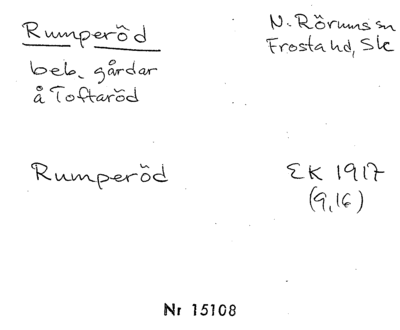 Rumperöd
N. Rörums sn
Frosta hd, Sk
beb. gårdar
å Toftaröd
Rumperöd
EK 1917
(9,16)
Nr 15108